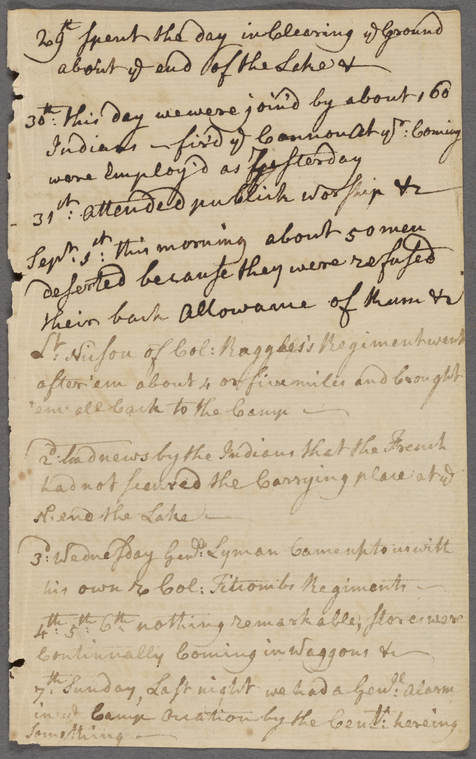 29th spent the day in Clearing ye Ground
about ye end of the Lake &
30th: this day we were join'd by about 160
Indians - fir'd ye Cannon At yr: Coming
were Employ'd as Yesterday
31st: attended publick worship &c
Sept: 1st: this morning about 50 men
deserted because they were refused
their back Allowance of Rum &c
Lt: Nixson of Col: Ruggles's Regiment went
after 'em about 4 or five miles and brought
'em all back to the Camp -
2d: had news by the Indians that the French
had not secured the Carrying place at ye
N: end the Lake
3d: Wednesday Genll: Lyman Came up to us with
his own & Col: Titcombs Regiments -
4th: 5th: 6th nothing remarkable, stores were
Continually Coming in Waggons &c
7th: Sunday, Last night we had a Genll: Alarm
in ye Camp by the Cent: hereing
Something -